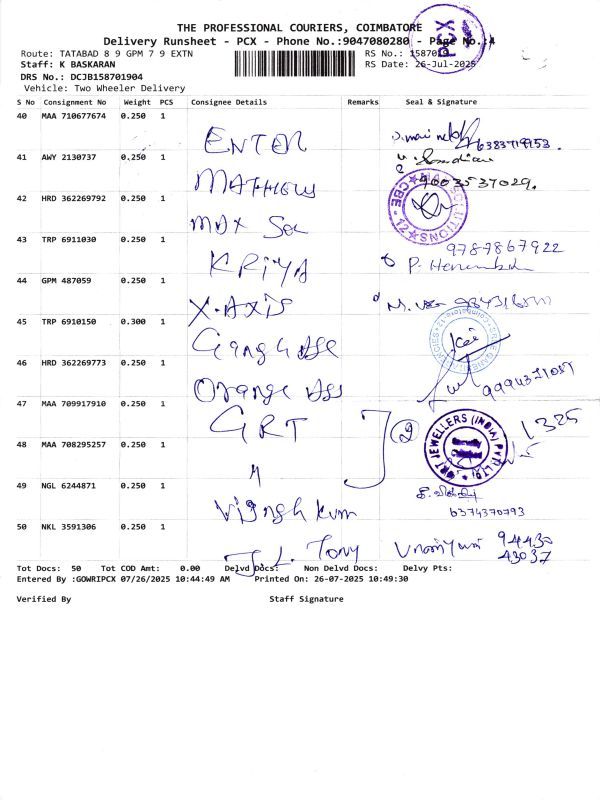 THE PROFESSIONAL COURIERS, COIMBATORE
Delivery Runsheet - PCX - Phone No.:9047080280 - Page No.:4
PCX
Route: TATABAD 8 9 GPM 7 9 EXTN
RS No.:
Staff: K BASKARAN
RS Date: 26-Jul-2025
DRS No.: DCJB158701904
Vehicle: Two Wheeler Delivery
S No Consignment No Weight PCS Consignee Details Remarks Seal & Signature
40 MAA 710677674 0.250 1 ENTER
6383719153.
41 AWY 2130737 0.250 1 MATHEWS
9003537029.
42 HRD 362269792 0.250 1 MAX Sol
CBE - 12
43 TRP 6911030 0.250 1 KRIYA
9787867922
44 GPM 487059 0.250 1 X-AXIS
45 TRP 6910150 0.300 1 Ganga Ase
46 HRD 362269773 0.250 1 Orange Ass
47 MAA 709917910 0.250 1 GRT
2
1325
GRT JEWELLERS (INDIA) PVT. LTD
Security
48 MAA 708295257 0.250 1 "
49 NGL 6244871 0.250 1
6374370793
50 NKL 3591306 0.250 1 J.L. Tony
94430
43037
Tot Docs: 50 Tot COD Amt: 0.00 Delvd Docs: Non Delvd Docs: Delvy Pts:
Entered By :GOWRIPCX 07/26/2025 10:44:49 AM Printed On: 26-07-2025 10:49:30
Verified By Staff Signature